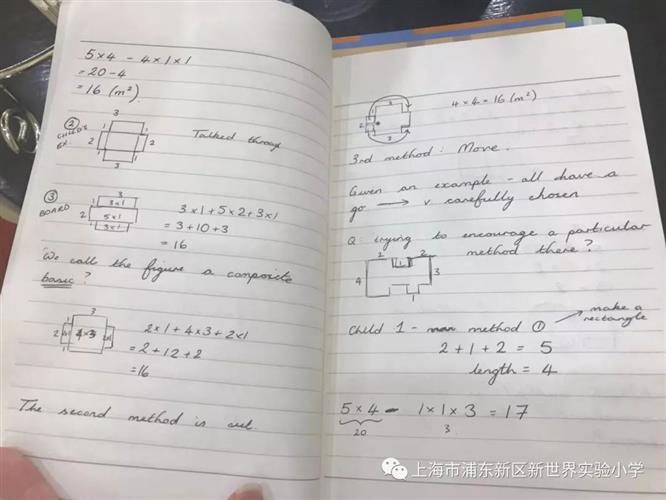 5×4 - 4×1×1
= 20-4
= 16 (m²)
②
CHILD'S
EX.
3
1
1
2
2
1
1
3
Talked through
③
BOARD
3
1
3×1
1
2
5×1
3×1
3×1+5×2+3×1
= 3+10+3
= 16
We call the figure a composite
basic?
3
1
2
4×3
2×1
1
2×1+4×3+2×1
= 2+12+2
=16
The second method is cut.
2
2
3
4×4=16 (m²)
3rd method: Move.
Given an example - all have a
go → v carefully chosen
Q: trying to encourage a particular
method there?
2
1
2
4
3
1
Child 1 - method ①
make a
rectangle
2+1+2 = 5
length = 4
5×4 - 1×1×3 = 17
20
3
上海市浦东新区新世界实验小学